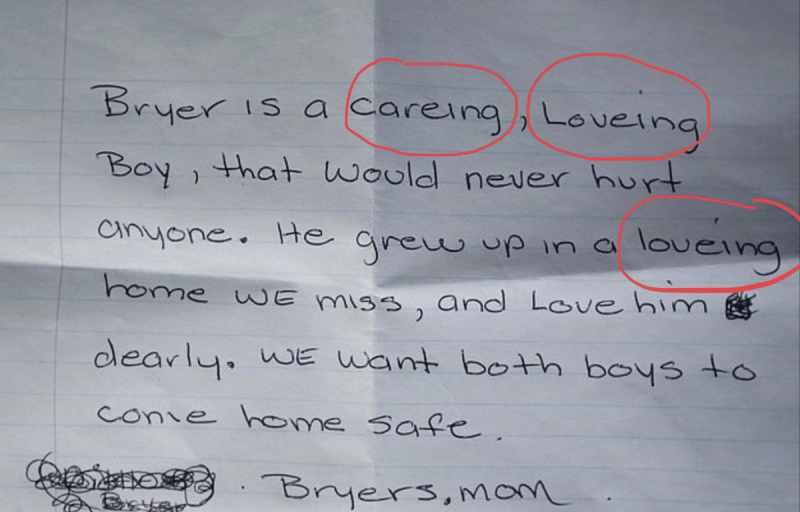 Bryer is a careing, Loveing
Boy, that would never hurt
anyone. He grew up in a loveing
home WE miss, and Love him
dearly. WE want both boys to
come home safe.
Bryers, mom